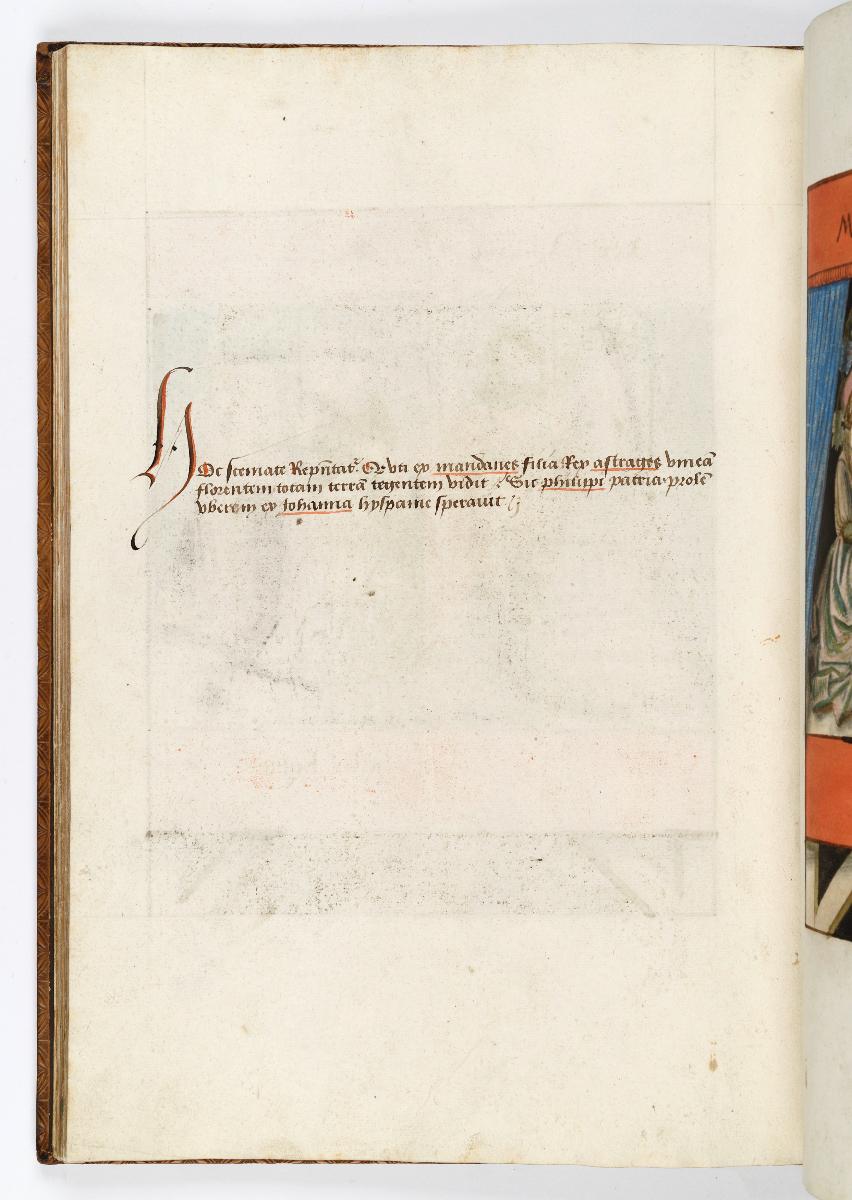 HOc scemate Rep̄ntat᷑. Qꝛ vti ex mandanes filia Rex astrages vineā
florentem totam terrā tegentem vidit / Sic philippi patria prolē
vberem ex Johanna hyspanie sperauit
M